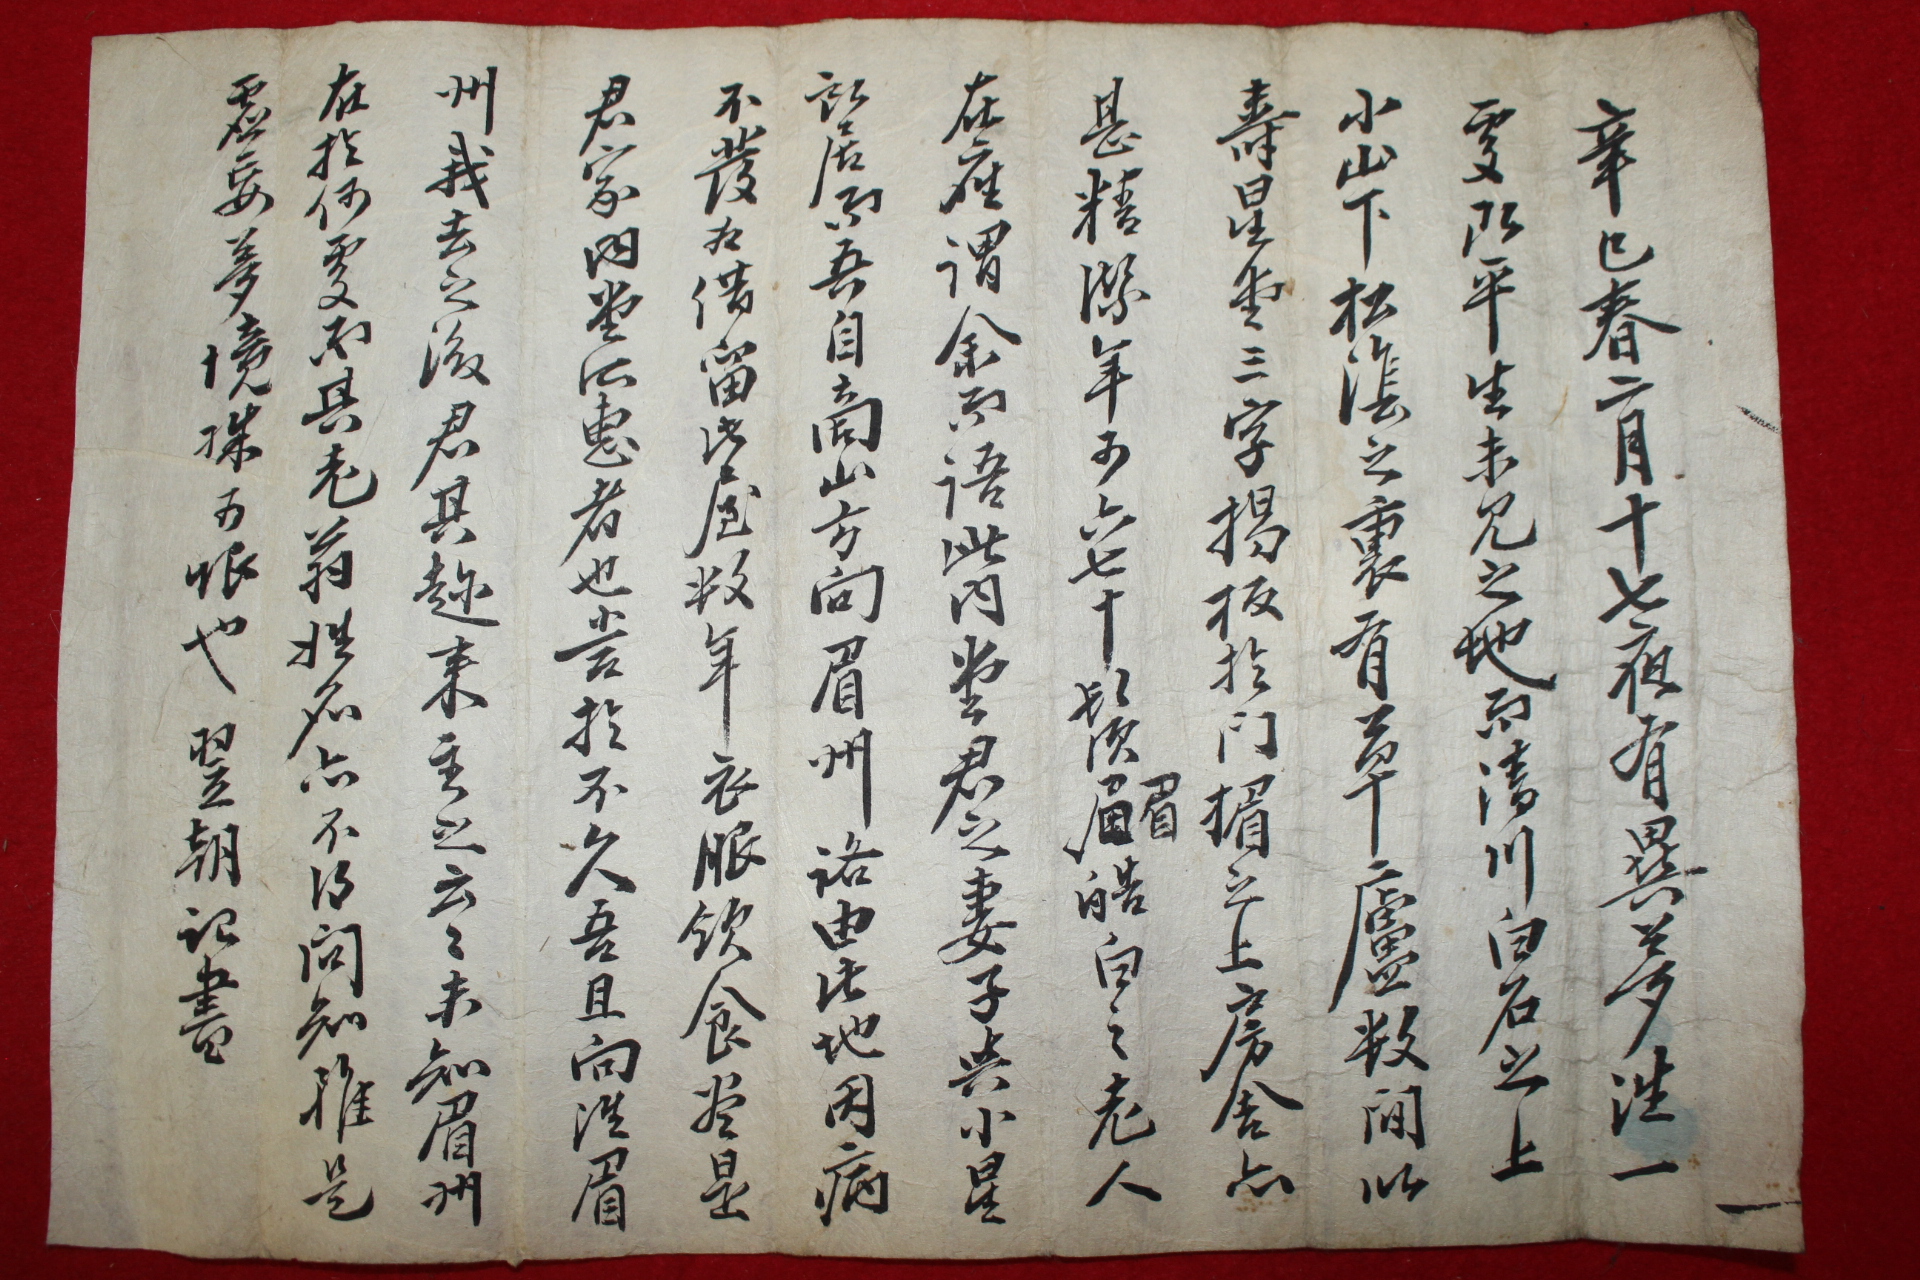 辛巳春二月十七夜有異夢往一
處卽平生未見之地而淸川白石之上
小山下松蔭之裏有草廬數間以
壽星堂三字揭板於門楣之上房舍亦
甚精潔年可六七十鬚眉皓白之老人
眉
在座謂余而語此內堂君之妻子與小星
所居而吾自商山方向眉州路由此地因病
不發故借留此屋數年衣服飮食皆是
君家內堂所惠者也當於不久吾且向往眉
州我去之後君其趂來主之云云未知眉州
在於何處而其老翁姓名亦不得問知雖是
虛妄夢境殊可恨也 翌朝記書